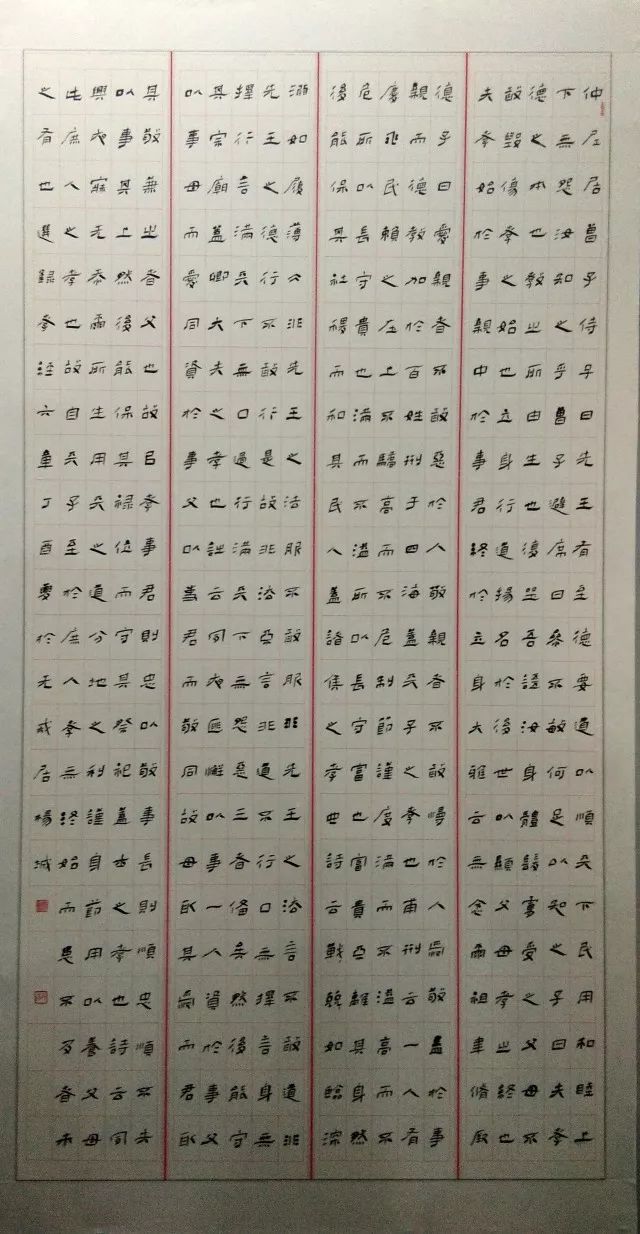 仲尼居曾子侍子曰先王有至德要道以順天下民用和睦上
下無怨汝知之乎曾子避席曰參不敏何足以知之子曰夫孝
德之本也教之所由生也復坐吾語汝身體髮膚受之父母不
敢毀傷孝之始也立身行道揚名於後世以顯父母孝之終也
夫孝始於事親中於事君終於立身大雅云無念爾祖聿脩厥
德子曰愛親者不敢惡於人敬親者不敢慢於人愛敬盡於事
親而德教加於百姓刑于四海蓋天子之孝也甫刑云一人有
慶兆民賴之在上不驕高而不危制節謹度滿而不溢高而不
危所以長守貴也滿而不溢所以長守富也富貴不離其身然
後能保其社稷而和其民人蓋諸侯之孝也詩云戰兢如臨深
淵如履薄冰非先王之法服不敢服非先王之法言不敢道非
先王之德行不敢行是故非法不言非道不行口無擇言身無
擇行言滿天下無口過行滿天下無怨惡三者備矣然後能守
其宗廟蓋卿大夫之孝也詩云夙夜匪懈以事一人資於事父
以事母而愛同資於事父以事君而敬同故母取其愛而君取
其敬兼之者父也故以孝事君則忠以敬事長則順忠順不失
以事其上然後能保其祿位而守其祭祀蓋士之孝也詩云夙
興夜寐无忝爾所生用天之道分地之利謹身節用以養父母
此庶人之孝也故自天子至於庶人孝無終始而患不及者未
之有也選錄孝經六章丁酉夏於无戒居楊